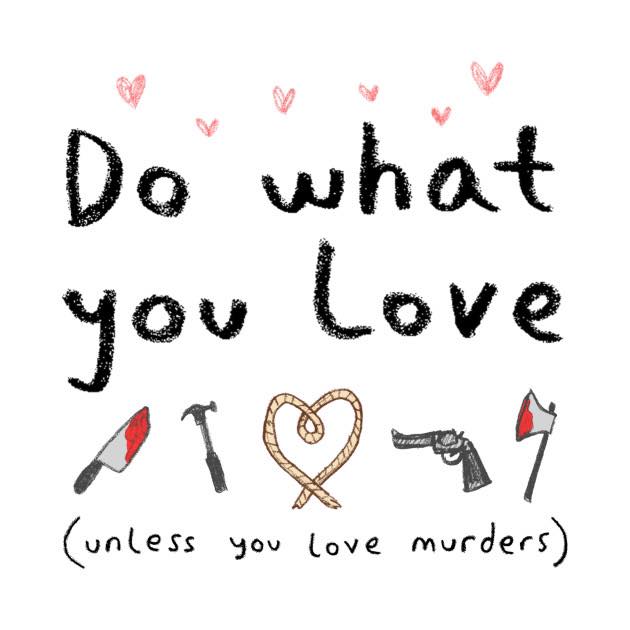 Do what
you love
(unless you love murders)